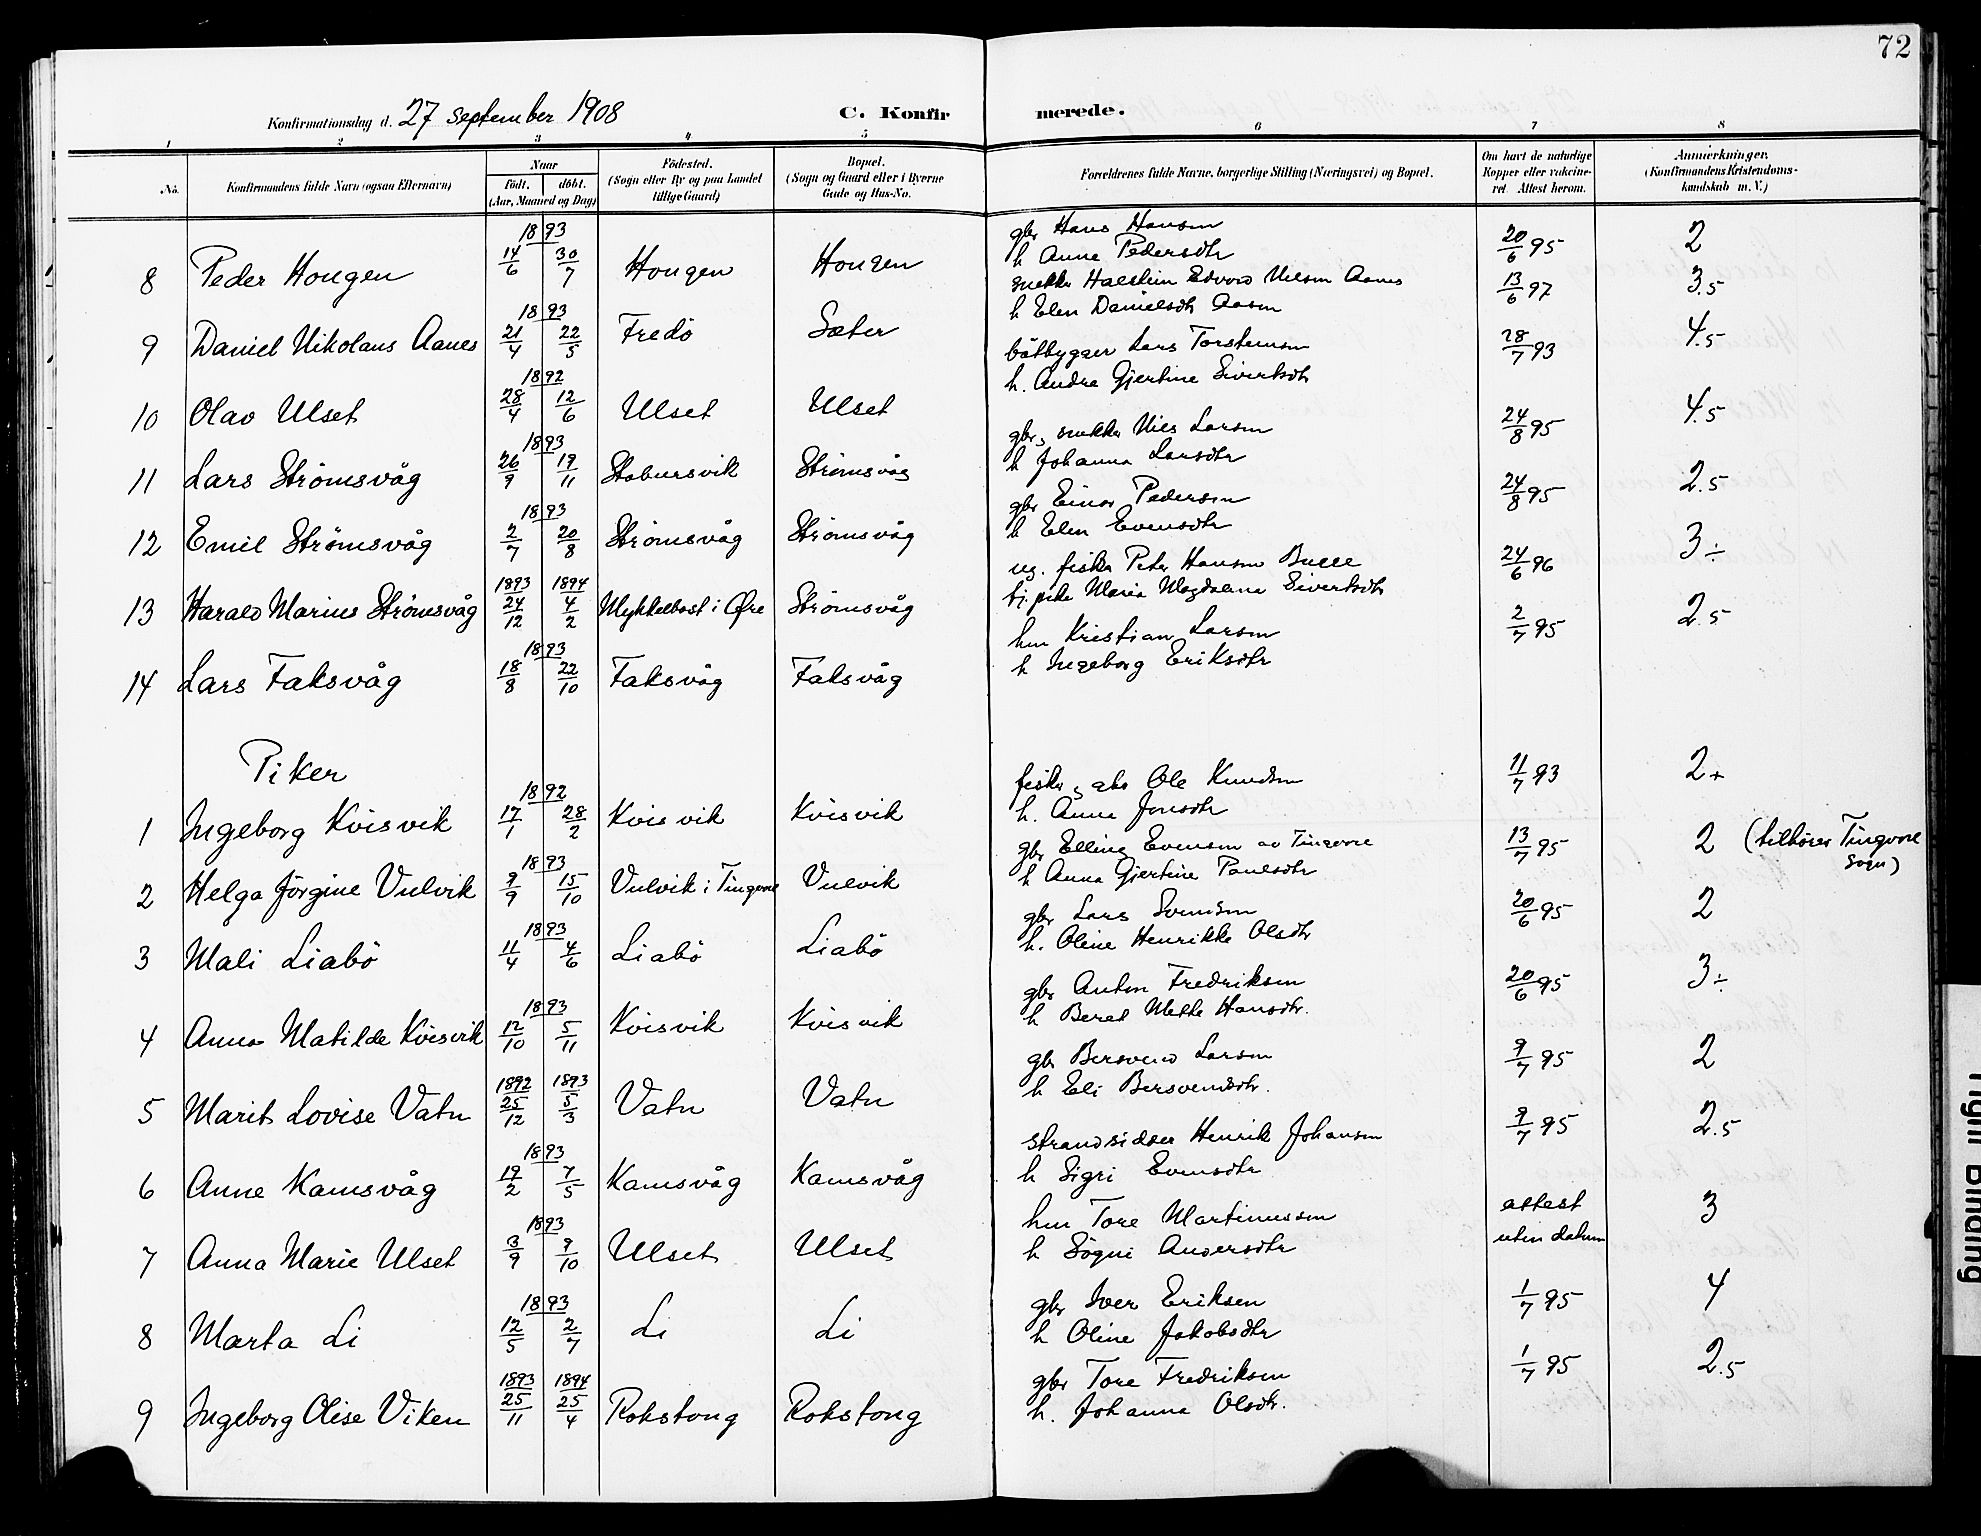 72
Konfirmationsdag d. 27 september 1908 C. Konfirmerede.
1 2 3 4 5 6 7 8
No. Konfirmandens fulde Navn (ogsaa Efternavn) Naar født. døbt. (Aar, Maaned og Dag) Födested. (Sogn eller By og paa Landet tillige Gaard) Bopæl. (Sogn og Gaard eller i Byerne Gade og Hus-No. Forældrenes fulde Navne, borgerlige Stilling (Næringsvei) og Bopæl. Om havt de naturlige Kopper eller vaccineret. Attest herom. Anmærkninger. (Konfirmandens Kristendomskundskab m. V.)
8 Peder Hougen 1893 14/6 30/7 Hougen Hougen gbr Hans Hansen 20/6 95 2
h Anne Pedersdtr
9 Daniel Nikolaus Aanes 1893 21/4 22/5 Fredö Sæter snekker Halstein Edvard Nilsen Aanes 13/6 97 3.5
h Elen Danielsdtr
10 Olav Ulset 1892 28/4 12/6 Ulset Ulset båtbygger Lars Torstensen 28/7 93 4.5
h. Andrea Gjertine Sivertsdtr
11 Lars Strömsvåg 1893 26/9 19/11 Stabursvik Strömsvåg gbr, snekker Nils Larsen 24/8 95 4.5
h Johanna Larsdtr
12 Emil Strömsvåg 1893 2/7 20/8 Strömsvåg Strömsvåg gbr Einar Pedersen 24/8 95 2.5
h Elen Evensdtr
13 Harald Marius Strömsvåg 1893 24/12 1894 4/2 Myklebost i Øre Strömsvåg ug. fisker Peter Hansen 24/6 96 3÷
tj. pike Maria Magdalena Sivertsdtr
14 Lars Faksvåg 1893 18/8 22/10 Faksvåg Faksvåg hm Kristian Larsen 2/7 95 2.5
h Ingeborg Eriksdtr
Piker
1 Ingeborg Kvisvik 1892 17/1 28/2 Kvisvik Kvisvik fisker, gbr Ole Knudsen 11/7 93 2+
h. Anna Jonsdtr
2 Helga Jörgine Vulvik 1893 9/9 15/10 Vulvik i Tingvoll Vulvik gbr Elling Evensen av Tingvoll 13/7 95 2 (tilhører Tingvoll sogn)
h Anna Gjertine Paulsdtr
3 Mali Liabö 1893 11/4 4/6 Liabö Liabö gbr Lars Svendsen 20/6 95 2
h. Oline Henrikke Olsdtr
4 Anna Matilde Kvisvik 1893 12/10 5/11 Kvisvik Kvisvik gbr Anton Fredriksen 20/6 95 3÷
h Beret Mette Hansdtr.
5 Marit Lovise Vatn 1892 25/12 1893 5/3 Vatn Vatn gbr Bersvend Larsen 9/7 95 2
h Eli Bersvendsdtr.
6 Anne Kamsvåg 1893 19/2 7/5 Kamsvåg Kamsvåg strandsidder Henrik Johansen 9/7 95 2.5
h Sigri Evensdtr
7 Anna Marie Ulset 1893 3/9 9/10 Ulset Ulset hm Tore Martinussen attest uten datum 3
h Sögni Andersdtr
8 Marta Li 1893 12/5 2/7 Li Li gbr Iver Eriksen 1/7 95 4
h Oline Jakobsdtr
9 Ingeborg Olise Viken 1893 25/11 1894 25/4 Rokstong Rokstong gbr Tore Fredriksen 1/7 95 2.5
h. Johanna Olsdtr.
Tight Binding